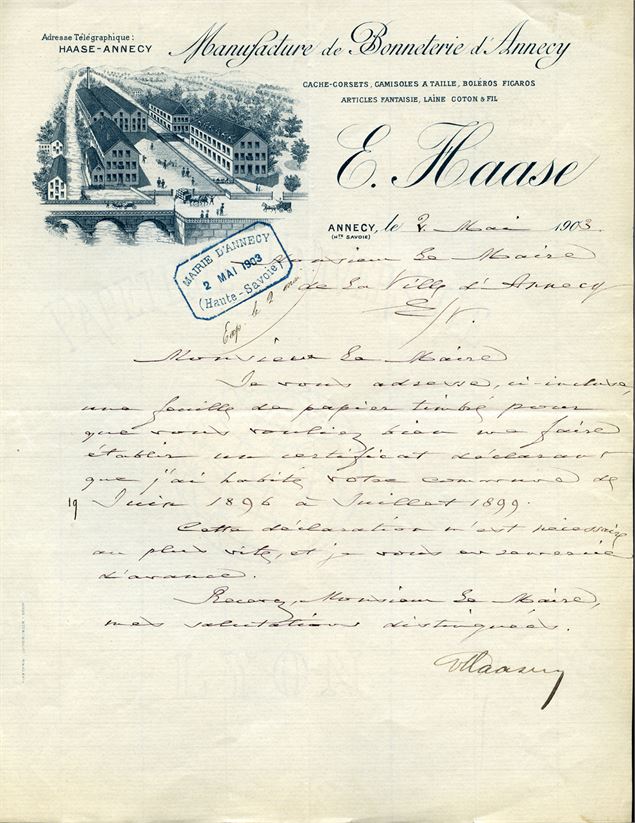 Adresse Télégraphique :
HAASE-ANNECY
Manufacture de Bonneterie d'Annecy
CACHE-CORSETS, CAMISOLES A TAILLE, BOLÉROS FIGAROS
ARTICLES FANTAISIE, LAINE COTON & FIL
E. Haase
ANNECY, le 2 Mai 1903.
(HTE SAVOIE)
MAIRIE D'ANNECY
2 MAI 1903
(Haute-Savoie)
Monsieur Le Maire
de La Ville d'Annecy
E/V.
Exp. le 2 mai
Monsieur Le Maire
Je vous adresse, ci-incluse,
une feuille de papier timbré pour
que vous vouliez bien me faire
établir un certificat déclarant
que j'ai habité votre commune de
19 Juin 1896 à Juillet 1899.
Cette déclaration m'est nécessaire
au plus vite, et je vous en remercie
d'avance.
Recevez, Monsieur Le Maire,
mes salutations distinguées.
EHaase